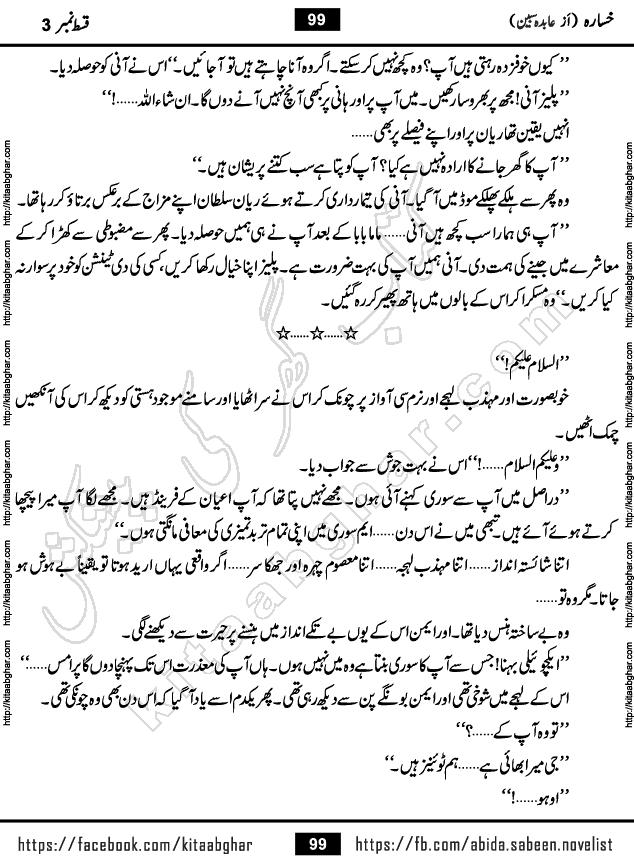 خسارہ (از عابدہ سبین) 99 قسط نمبر 3
’’ کیوں خوفزدہ رہتی ہیں آپ؟ وہ کچھ نہیں کر سکتے۔ اگر وہ آنا چاہتے ہیں تو آ جائیں۔‘‘ اس نے آنی کو حوصلہ دیا۔
’’ پلیز آنی! مجھ پر بھروسا رکھیں۔ میں آپ پر اور ہانی پر کبھی آنچ نہیں آنے دوں گا۔ ان شاء اللہ......!‘‘
انہیں یقین تھا ریان پر اور اپنے فیصلے پر بھی......
’’ آپ کا گھر جانے کا ارادہ نہیں ہے کیا؟ آپ کو پتا ہے سب کتنے پریشان ہیں۔‘‘
وہ پھر سے ہلکے پھلکے موڈ میں آ گیا۔ آنی کی تیمارداری کرتے ہوئے ریان سلطان اپنے مزاج کے برعکس برتاؤ کر رہا تھا۔
’’ آپ ہی ہمارا سب کچھ ہیں آنی...... ماما بابا کے بعد آپ نے ہی ہمیں حوصلہ دیا۔ پھر سے مضبوطی سے کھڑا کر کے
معاشرے میں جینے کی ہمت دی۔ آنی ہمیں آپ کی بہت ضرورت ہے۔ پلیز اپنا خیال رکھا کریں، کسی کی دی ٹینشن کو خود پر سوار نہ
کیا کریں۔‘‘ وہ مسکرا کر اس کے بالوں میں ہاتھ پھیر کر رہ گئیں۔
☆......☆......☆
’’السلام علیکم!‘‘
خوبصورت اور مہذب لہجے اور نرم سی آواز پر چونک کر اس نے سر اٹھایا اور سامنے موجود ہستی کو دیکھ کر اس کی آنکھیں
چمک اٹھیں۔
’’وعلیکم السلام......!‘‘ اس نے بہت جوش سے جواب دیا۔
’’دراصل میں آپ سے سوری کہنے آئی ہوں۔ مجھے نہیں پتا تھا کہ آپ اعیان کے فرینڈ ہیں۔ مجھے لگا آپ میرا پیچھا
کرتے ہوئے آئے ہیں۔ تبھی میں نے اس دن...... ایم سوری میں اپنی تمام تر بدتمیزی کی معافی مانگتی ہوں۔‘‘
اتنا شائستہ انداز...... اتنا مہذب لہجہ...... اتنا معصوم چہرہ اور جھکا سر...... اگر واقعی یہاں ارید ہوتا تو یقیناً بے ہوش ہو
جاتا۔ مگر وہ تو......
وہ بے ساختہ ہنس دیا تھا۔ اور ایمن اس کے یوں بے تکے انداز میں ہنسنے پر حیرت سے دیکھنے لگی۔
’’ ایکچوئیلی بہنا! جس سے آپ کا سوری بنتا ہے وہ میں نہیں ہوں۔ ہاں آپ کی معذرت اس تک پہنچا دوں گا پرامس......‘‘
اس کے لہجے میں شوخی تھی اور ایمن بونگے پن سے دیکھ رہی تھی۔ پھر یکدم اسے یاد آ گیا کہ اس دن بھی وہ چونکی تھی۔
’’ تو وہ آپ کے......؟‘‘
’’جی میرا بھائی ہے...... ہم ٹوئینز ہیں۔‘‘
’’اوہو......!‘‘
https://facebook.com/kitaabghar 99 https://fb.com/abida.sabeen.novelist
http://kitaabghar.com http://kitaabghar.com http://kitaabghar.com http://kitaabghar.com http://kitaabghar.com http://kitaabghar.com
http://kitaabghar.com http://kitaabghar.com http://kitaabghar.com http://kitaabghar.com http://kitaabghar.com http://kitaabghar.com
کتاب گھر کی پیشکش
kitaabghar.com